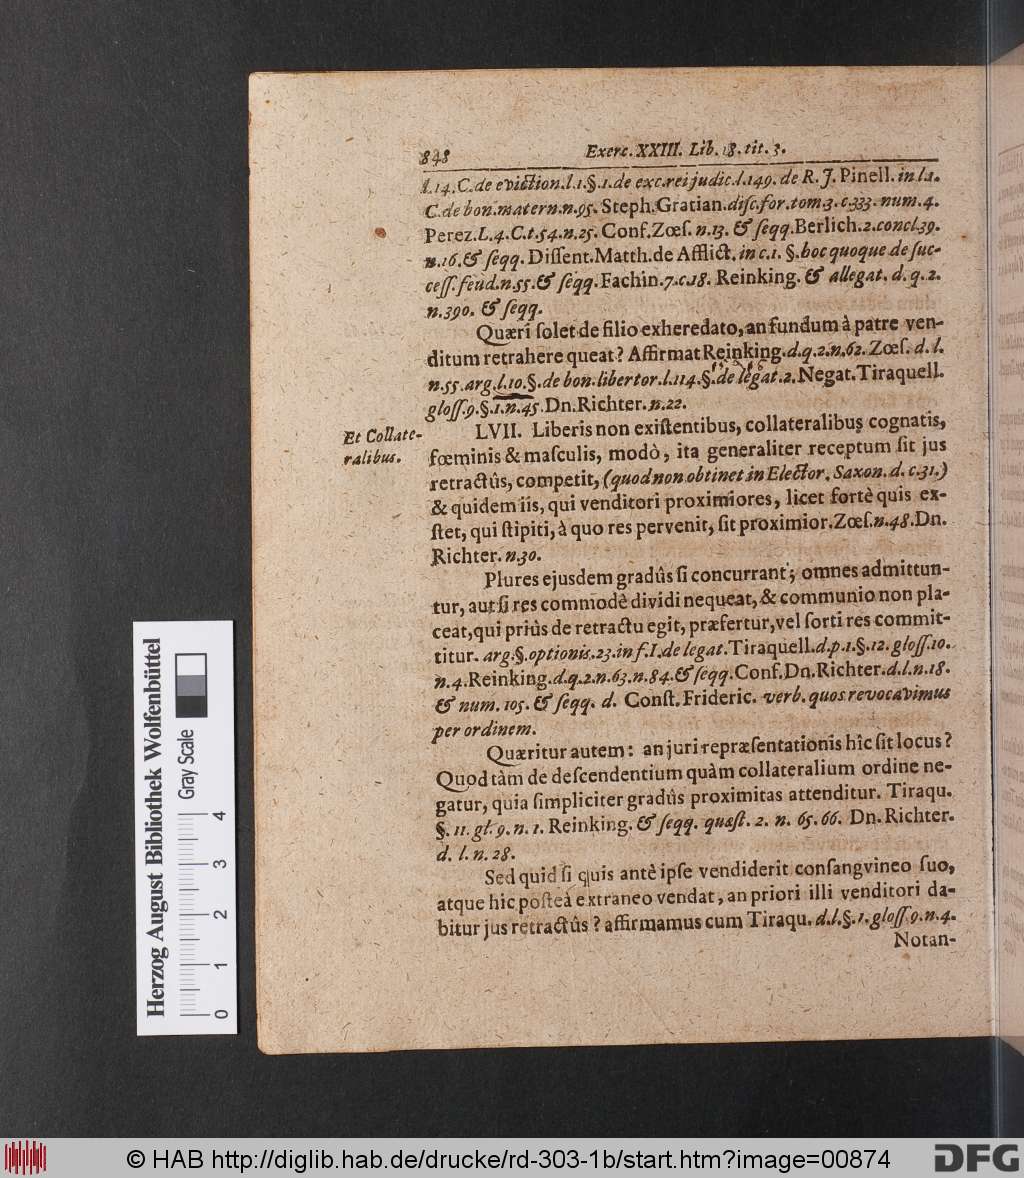 848 Exerc. XXIII. Lib. 18. tit. 3.
l.14. C. de eviction. l.1. §.1. de exc. rei judic. l.149. de R. J. Pinell. in l.1.
C. de bon. matern. n.95. Steph. Gratian. diſc. for. tom. 3. c.333. num. 4.
Perez. L. 4. C. t. 54. n. 25. Conf. Zœſ. n. 13. & ſeqq. Berlich. 2. concl. 39.
n. 16. & ſeqq. Diſſent. Matth. de Afflict. in c. 1. §. hoc quoque de ſuc-
ceſſ. feud. n. 55. & ſeqq. Fachin. 7. c. 18. Reinking. & allegat. d. q. 2.
n. 390. & ſeqq.
Quæri ſolet de filio exheredato, an fundum à patre ven-
ditum retrahere queat? Affirmat Reinking. d. q. 2. n. 62. Zœſ. d. l.
n. 55. arg. l. 10. §. de bon. libertor. l. 114. §. de legat. 2. Negat. Tiraquell.
gloſſ. 9. §. 1. n. 45. Dn. Richter. n. 22.
Et Collate-
ralibus.
LVII. Liberis non exiſtentibus, collateralibus cognatis,
fœminis & maſculis, modò, ita generaliter receptum ſit jus
retractûs, competit, (quod non obtinet in Elector. Saxon. d. c. 31.)
& quidem iis, qui venditori proximiores, licet fortè quis ex-
ſtet, qui ſtipiti, à quo res pervenit, ſit proximior. Zœſ. n. 48. Dn.
Richter. n. 30.
Plures ejusdem gradûs ſi concurrant; omnes admittun-
tur, aut ſi res commodè dividi nequeat, & communio non pla-
ceat, qui priùs de retractu egit, præfertur, vel ſorti res commit-
titur. arg. §. optionis. 23. in f. I. de legat. Tiraquell. d. p. 1. §. 12. gloſſ. 10.
n. 4. Reinking. d. q. 2. n. 63. n. 84. & ſeqq. Conf. Dn. Richter. d. l. n. 18.
& num. 105. & ſeqq. d. Conſt. Frideric. verb. quos revocavimus
per ordinem.
Quæritur autem: an juri repræſentationis hîc ſit locus?
Quod tàm de deſcendentium quàm collateralium ordine ne-
gatur, quia ſimpliciter gradûs proximitas attenditur. Tiraqu.
§. 11. gl. 9. n. 1. Reinking. & ſeqq. quæſt. 2. n. 65. 66. Dn. Richter.
d. l. n. 28.
Sed quid ſi quis antè ipſe vendiderit conſangvineo ſuo,
atque hic poſteà extraneo vendat, an priori illi venditori da-
bitur jus retractûs? affirmamus cum Tiraqu. d. l. §. 1. gloſſ. 9. n. 4.
Notan-
Herzog August Bibliothek Wolfenbüttel
Gray Scale
0 1 2 3 4
© HAB http://diglib.hab.de/drucke/rd-303-1b/start.htm?image=00874
DFG